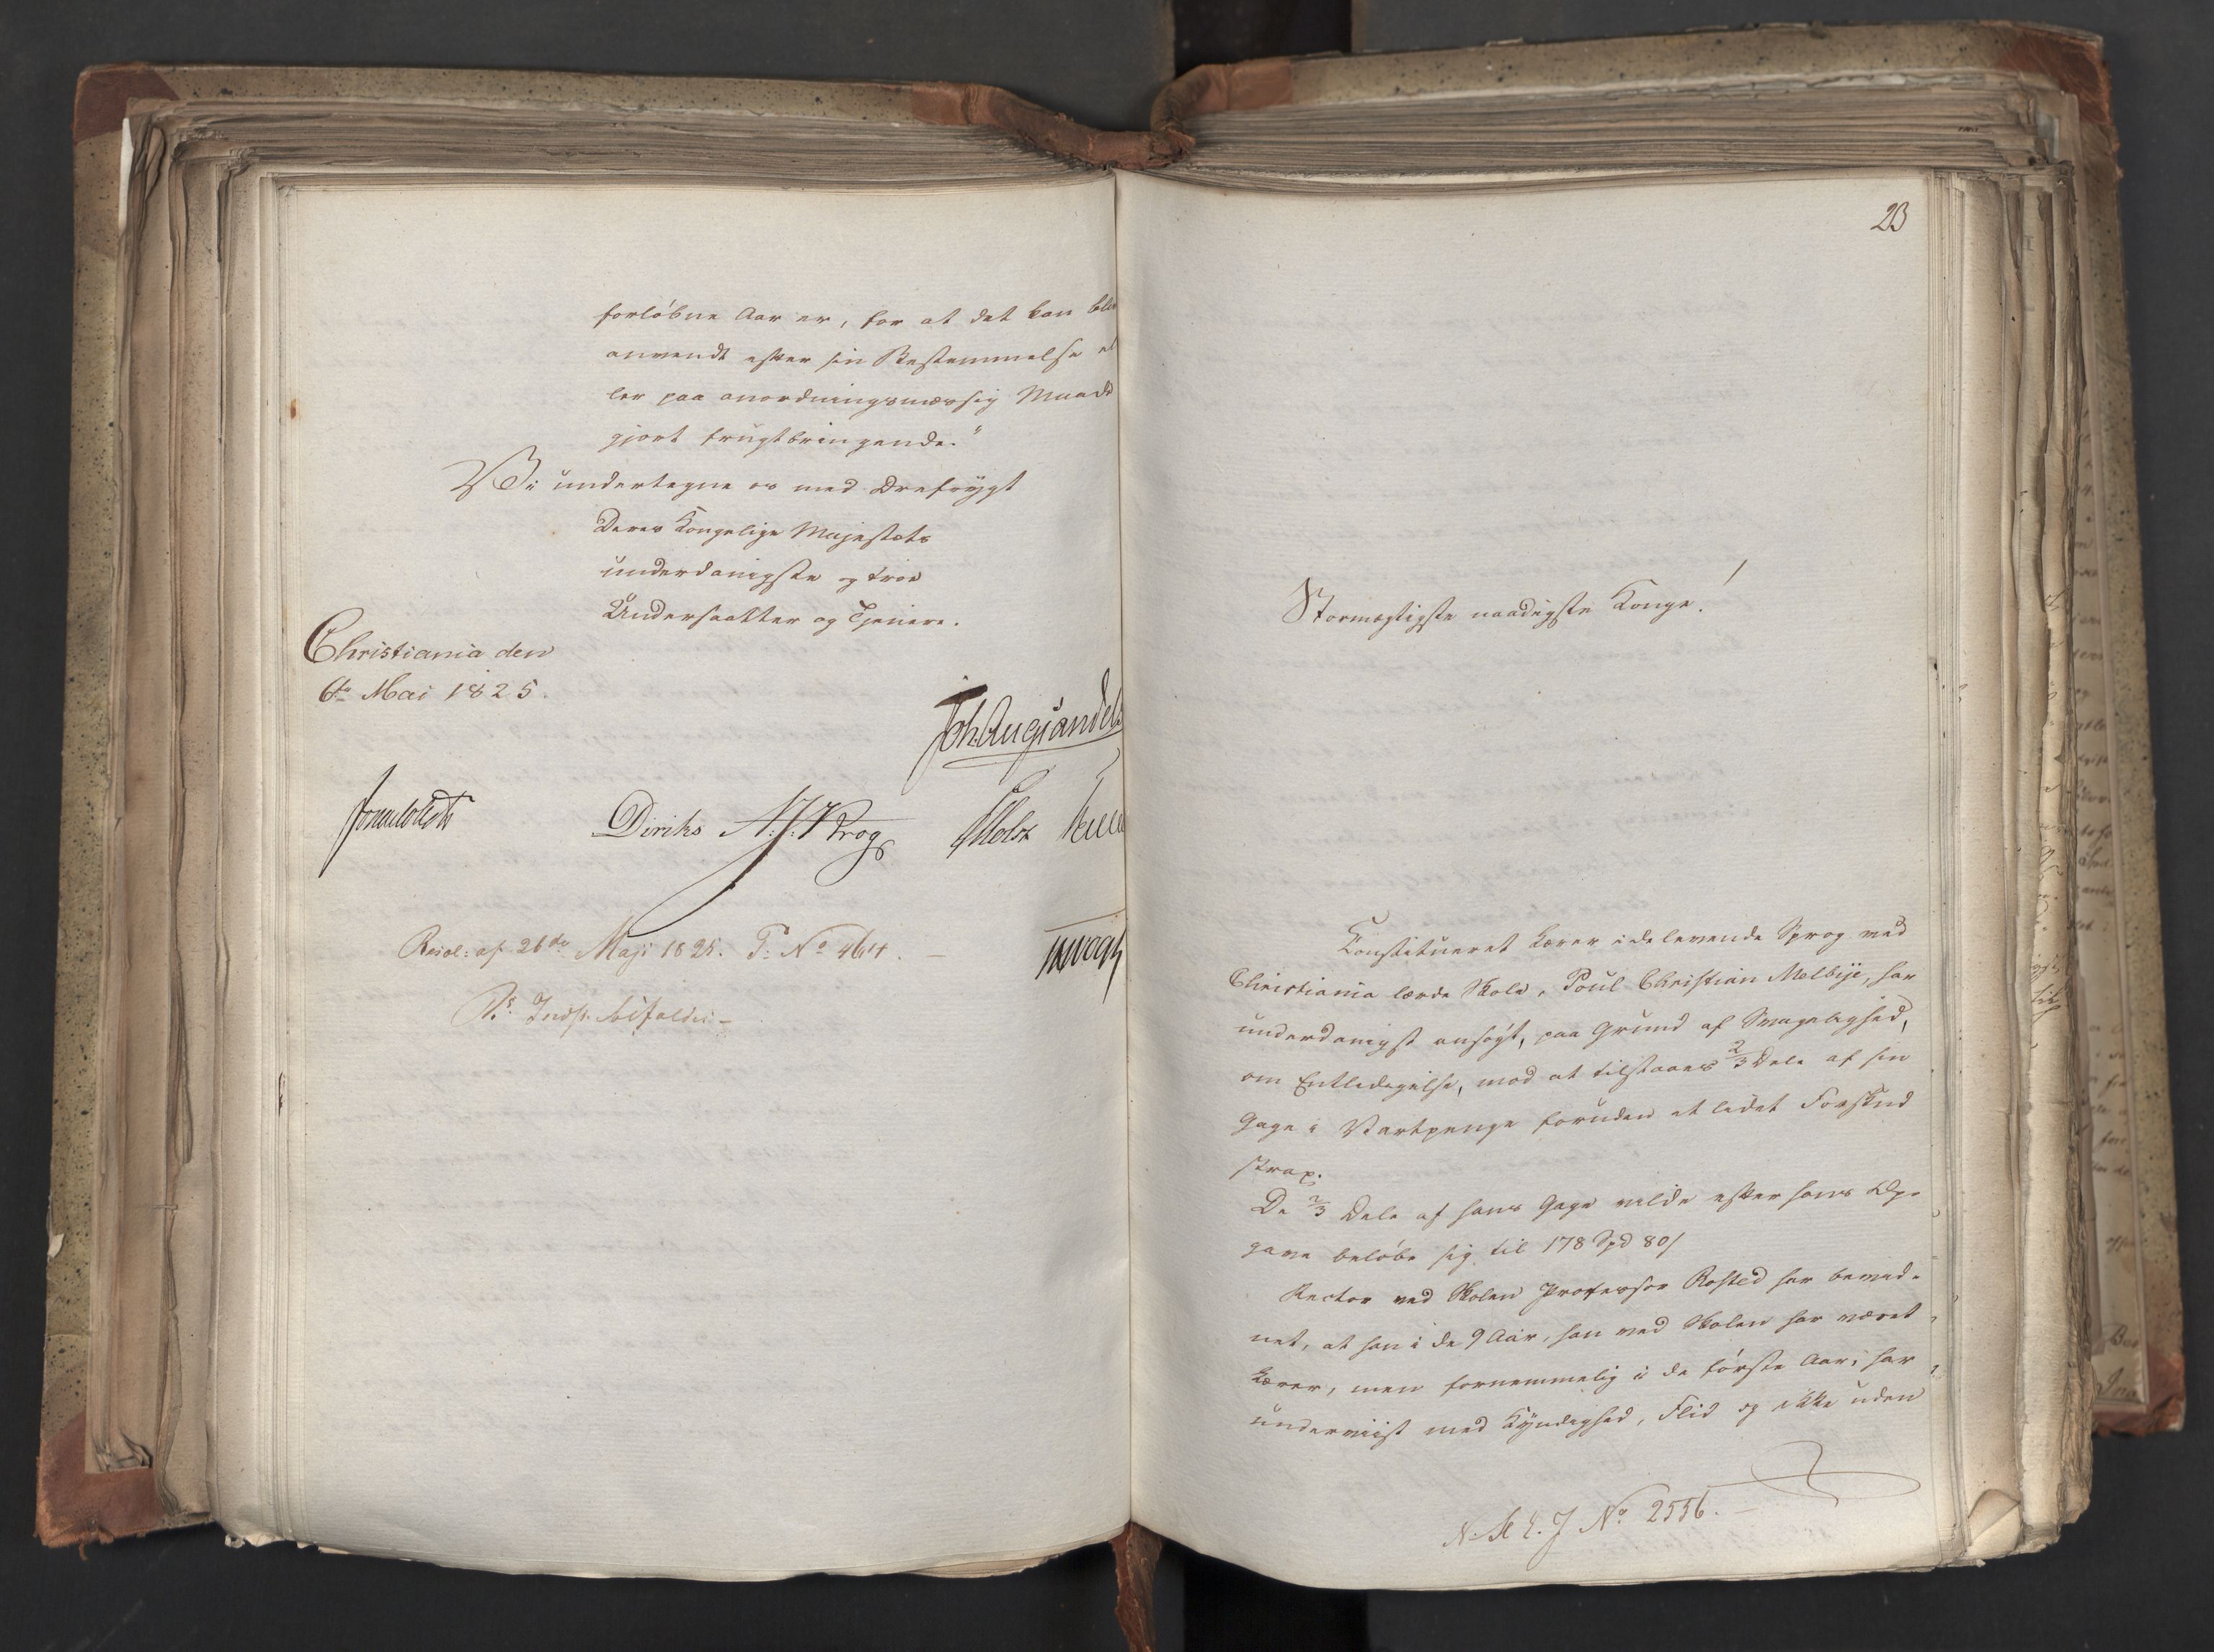 forløbne Aar er, for at det kan bli
anvendt efter sin Bestemmelse el
ler paa anordningsmæssig Maade
gjort frugtbringende."
Vi undertegne os med Ærefrygt
Deres Kongelige Majestæts
underdanigste og troe
Undersaatter og Tjenere.
Christiania den
6te Mai 1825.
Joh. Aug. Sandels
Sommerfeldt Diriks A. J. Krog Holst
Resol: af 26de Maji 1825. P: No 464. —
23
Stormægtigste naadigste Konge!
Constitueret Lærer i de levende Sprog ved
Christiania lærde Skole, Poul Christian Melbye, har
underdanigst ansøgt, paa Grund af Svagelighed,
om Entledigelse, mod at tilstaaes 2/3 Dele af sin
Gage i Vartpenge foruden et lidet Forskud
strax.
De 2/3 Dele af hans Gage vilde efter hans Op-
gave beløbe sig til 178 Spd 80 s
Rector ved Skolen Professor Rosted har bevid-
net, at han i de 9 Aar, han ved Skolen har været
Lærer, men fornemmelig i de første Aar, har
underviist med Kyndighed, Flid og ikke uden
No 2556. —